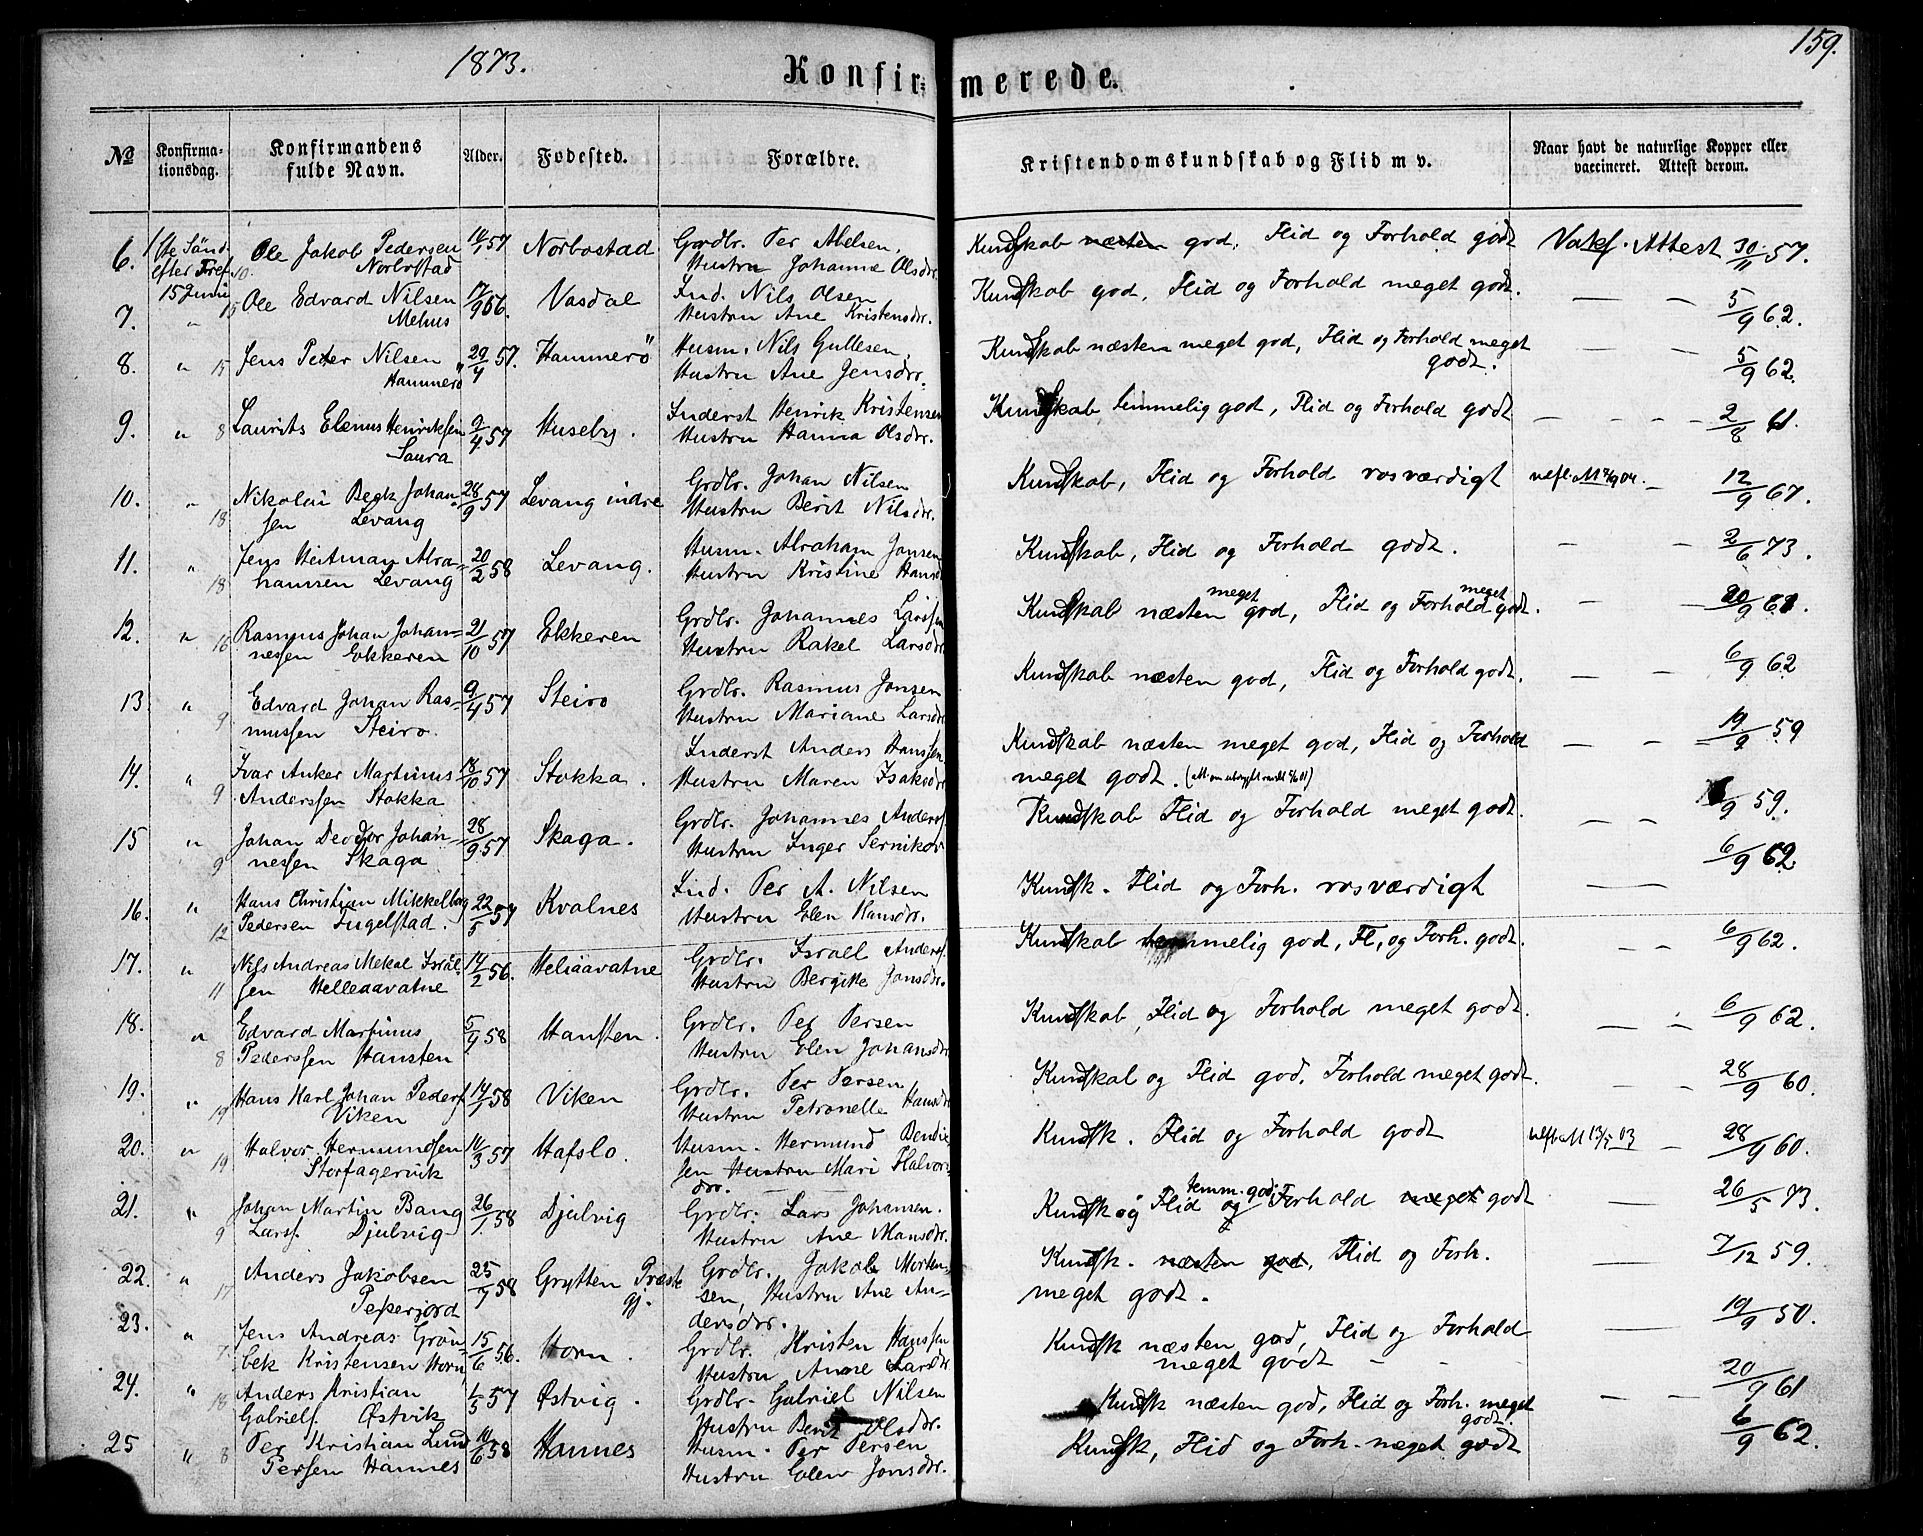 1873.
159.
Konfir= merede.
No
Konfirma-
tionsdag.
Konfirmandens
fulde Navn.
Alder.
Fodested.
Forældre.
Kristendomskundskab og Flid m v.
Naar havt de naturlige Kopper eller
vaccineret. Attest derom.
6. 1ste Sönd. Ole Jakob Pedersen 14/1 57 Norbostad Grdlr. Per Abelsen, Kundskab næsten god, Flid og Forhold godt Vakf. Attest 30/11 57.
efter Tref. 10. Norbostad Hustru Johanne Olsdr.
15 Juni
7. " 15 Ole Edvard Nilsen 17/9 56. Vasdal Ind. Nils Olsen Kundskab god, Flid og Forhold meget godt. — — 5/9 62.
Mehus Hustru Ane Kristensdr.
8. " 15 Jens Peter Nilsen 29/4 57. Hammerö Husm. Nils Gullesen, Kundskab næsten meget god, Flid og Forhold meget — — 5/9 62.
Hammerö Hustru Ane Jensdr. godt.
9. " 8 Laurits Elenus Henriksen 9/4 57 Huseby. Inderst Henrik Kristensen Kundskab temmelig god, Flid og Forhold godt — — 2/8 61.
Saura Hustru Hanna Olsdr.
10. " 18 Nikolai Beck Johan- 28/9 57 Levang indre Grdlr. Johan Nilsen Kundskab, Flid og Forhold rosværdigt — 12/9 67.
sen Levang Hustru Berit Nilsdr.
11. " 18 Jens Heitman Abra- 20/2 58 Levang. Husm. Abraham Jonsen Kundskab, Flid og Forhold godt. — — 2/6 73.
hamsen Levang Hustru Kristine Hansd
12. " 16 Rasmus Johan Johan- 21/10 57 Ekkeren Grdlr. Johannes Larssen Kundskab næsten meget god, Flid og Forhold meget godt. — —
nessen Ekkeren Hustru Rakel Larsdr
13 " 9 Edvard Johan Ras- 9/4 57 Steiro Grdlr. Rasmus Jonsen Kundskab næsten god, Flid og Forhold godt. — — 6/9 62
mussen Steiro. Hustru Mariane Larsdr
14. " 9 Ivar Anker Martinus 18/10 57 Stokka. Inderst Anders Hanssen Kundskab næsten meget god, Flid og Forhold — — 19/9 59
Anderssen Stokka Hustru Maren Isaksdr meget godt.
15 " 9 Johan Deodor Johan- 28/9 57 Skaga. Grdlr. Johannes Anders. Kundskab Flid og Forhold meget godt. — — /9 59.
nessen Skaga Hustru Inger
16. " 12 Hans Christian Mikkelborg 22/5 57 Kvalnes Ind. Per A. Nilsen Kundsk. Flid og Forh. rosværdigt — 6/9 62.
Pedersen Engelstad. Hustru Elen Hansdr.
17. " 11 Nils Andreas Mekal Israel- 14/2 56. Helleavatne Grdlr. Israel Anders. Kundskab temmelig god, Fl, og Forh. godt. — — 6/9 62.
sen Helleaavatne Hustru Bergitte Jonsdr.
18. " 8 Edvard Martinus 5/9 58 Hansten. Grdlr. Per Persen Kundskab, Flid og Forhold meget godt. — — 6/9 62.
Pederssen Hansten Hustru Elen Johansdr
19. " 19 Hans Karl Johan Peders. 14/1 58 Viken Grdlr. Per Persen Kundskab og Flid god. Forhold meget godt. — — 28/9 60.
Viken Hustru Petronelle Hansdr
20. " 19 Halvor Hermundsen 14/3 57 Hafslo. Husm. Hermund Bendik- Kundsk. Flid og Forhold godt — 28/9 60.
Storfagervik sen Hustru Mari Halvors-
dr.
21. " 9 Johan Martin Bang 26/1 58 Djulvig Grdlr. Lars Johansen. Kundsk og Flid temm. god og Forhold meget godt — 26/5 73.
Lars. Djulvig Hustru Ane Mansdr.
22. " 17 Anders Jakobsen 25/7 58 Grytten Præste Grdlr. Jakob Morten- Kundsk. næsten god, Flid og Forh. — 7/12 59.
Peperjord gj. sen, Hustru Ane An- meget godt.
dersdr.
23. " 7 Jens Andreas Grön- 15/6 56. Horn. Grdlr. Kristen Hanssen Kundsk næsten god, Flid og Forhold — 19/9 50.
bek Kristensen Horn Hustru Anne Larsdr meget godt — —
24. " 18 Anders Kristian 1/5 57 Østvig. Grdlr. Gabriel Nilsen Kundsk næsten god, Flid og Forh. meget — — 20/9 61
Gabriels. Østvik Hustru Berit Olsdr. godt.
25 " 8 Per Kristian Lund 14/6 58 Hannes Husm. Per Persen Kundsk, Flid og Forh. meget godt 6/9 62.
Persen Hannes Hustru Elen Jonsdr.